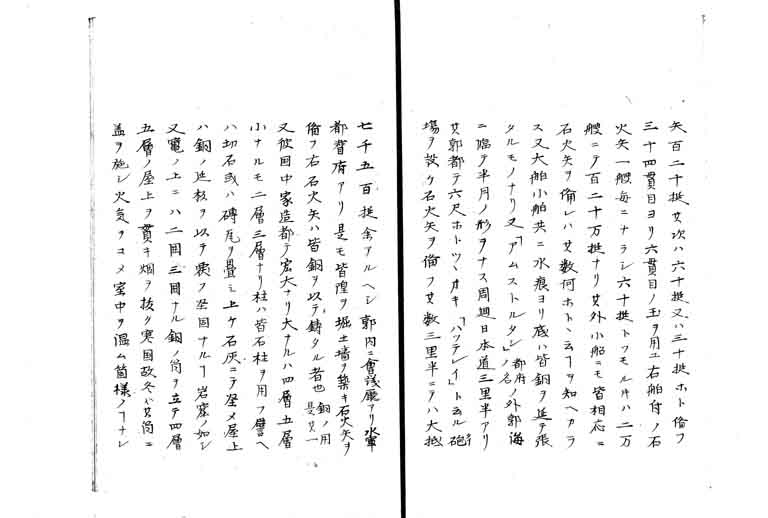 矢百二十挺其次ハ六十挺又ハ三十挺ホト備フ
三十四貫目ヨリ六貫目ノ玉ヲ用ユ右舶付ノ石
火矢一艘毎ニナラシ六十挺トツモルキハ二万
艘ニテ百二十万挺ナリ其外小船ニモ皆相応ニ
石火矢ヲ備レハ其数何ホトヽ云フヲ知ヘカラ
ス又大舶小舶共ニ水痕ヨリ底ハ皆銅ヲ延テ張
タルモノナリ又「アムストルタン」都府ノ名ノ外郭海
ニ臨テ半月ノ形ヲナス周廻日本道三里半アリ
其郭都テ六尺ホトツヽオキ「ハツテレイ」ト云ル砲
場ヲ設ケ石火矢ヲ備フ其数三里半ニテハ大抵
七千五百挺余アルヘシ郭内ニ會議廰アリ水軍
都督府アリ是モ皆隍ヲ堀土墻ヲ築キ石火矢ヲ
備フ右石火矢ハ皆銅ヲ以テ鋳タル者也銅ノ用是其一
又彼国中家造都テ宏大ナリ大ナルハ四層五層
小ナルモ二層三層ナリ柱ハ皆石柱ヲ用フ譬ヘ
ハ切石或ハ磚瓦ヲ畳ミ上ケ石灰ニテ塗メ屋上
ハ銅ノ延板ヲ以テ覆フ堅固ナルヿ岩窟ノ如シ
又竃ノ上ニハ二囲三囲ナル銅ノ筒ヲ立テ四層
五層ノ屋上ヲ貫キ烟ヲ抜ク寒国故冬ハ其筒ニ
盖ヲ施シ火気ヲコメ室中ヲ温ム箇様ノヿナレ